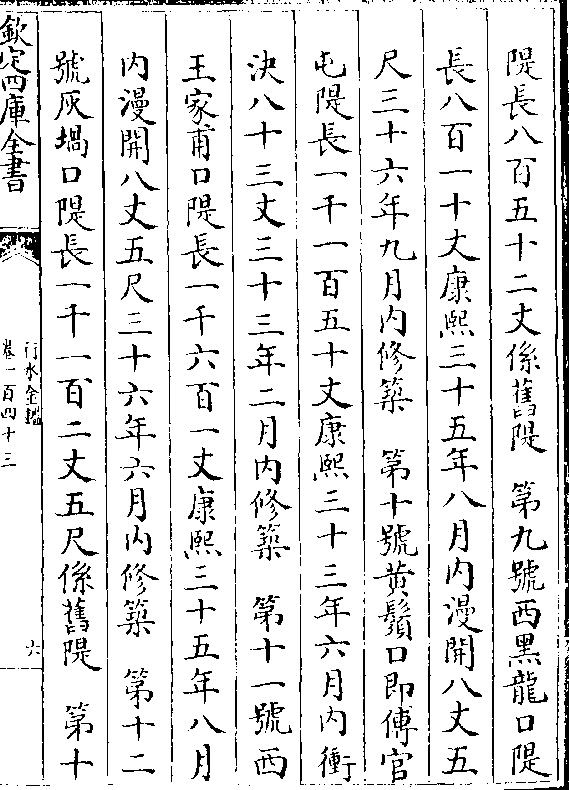 隄長八百五十二丈係舊隄　第九號西黑龍口隄
長八百一十丈康熙三十五年八月内漫開八丈五
尺三十六年九月内修築　第十號黄鬚口即傅官
屯隄長一千一百五十丈康熙三十三年六月内衝
決八十三丈三十三年二月内修築　第十一號西
王家甫口隄長一千六百一丈康熙三十五年八月
内漫開八丈五尺三十六年六月内修築　第十二
號灰堝口隄長一千一百二丈五尺係舊隄　第十
欽定四庫全書
行水金鑑
卷一百四十三
六